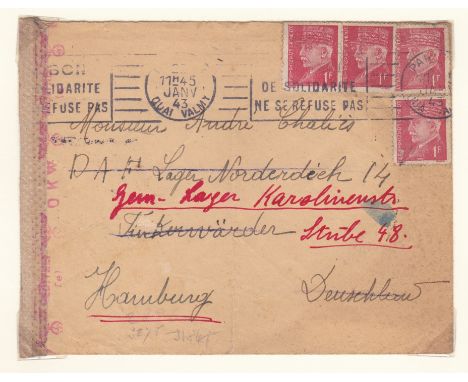 BON
11H45
JANV
43
QUAI VALMY
DE SOLIDARITE
NE SE REFUSE PAS
LIDARITE
REFUSE PAS
1F 1F 1F
1F
Monsieur André Chaliès
D A F Lager Norderdéich 14
Gem - Lager Karolinenstr.
Finkerwärder Stube 48.
Hamburg Deuschlan
OKW